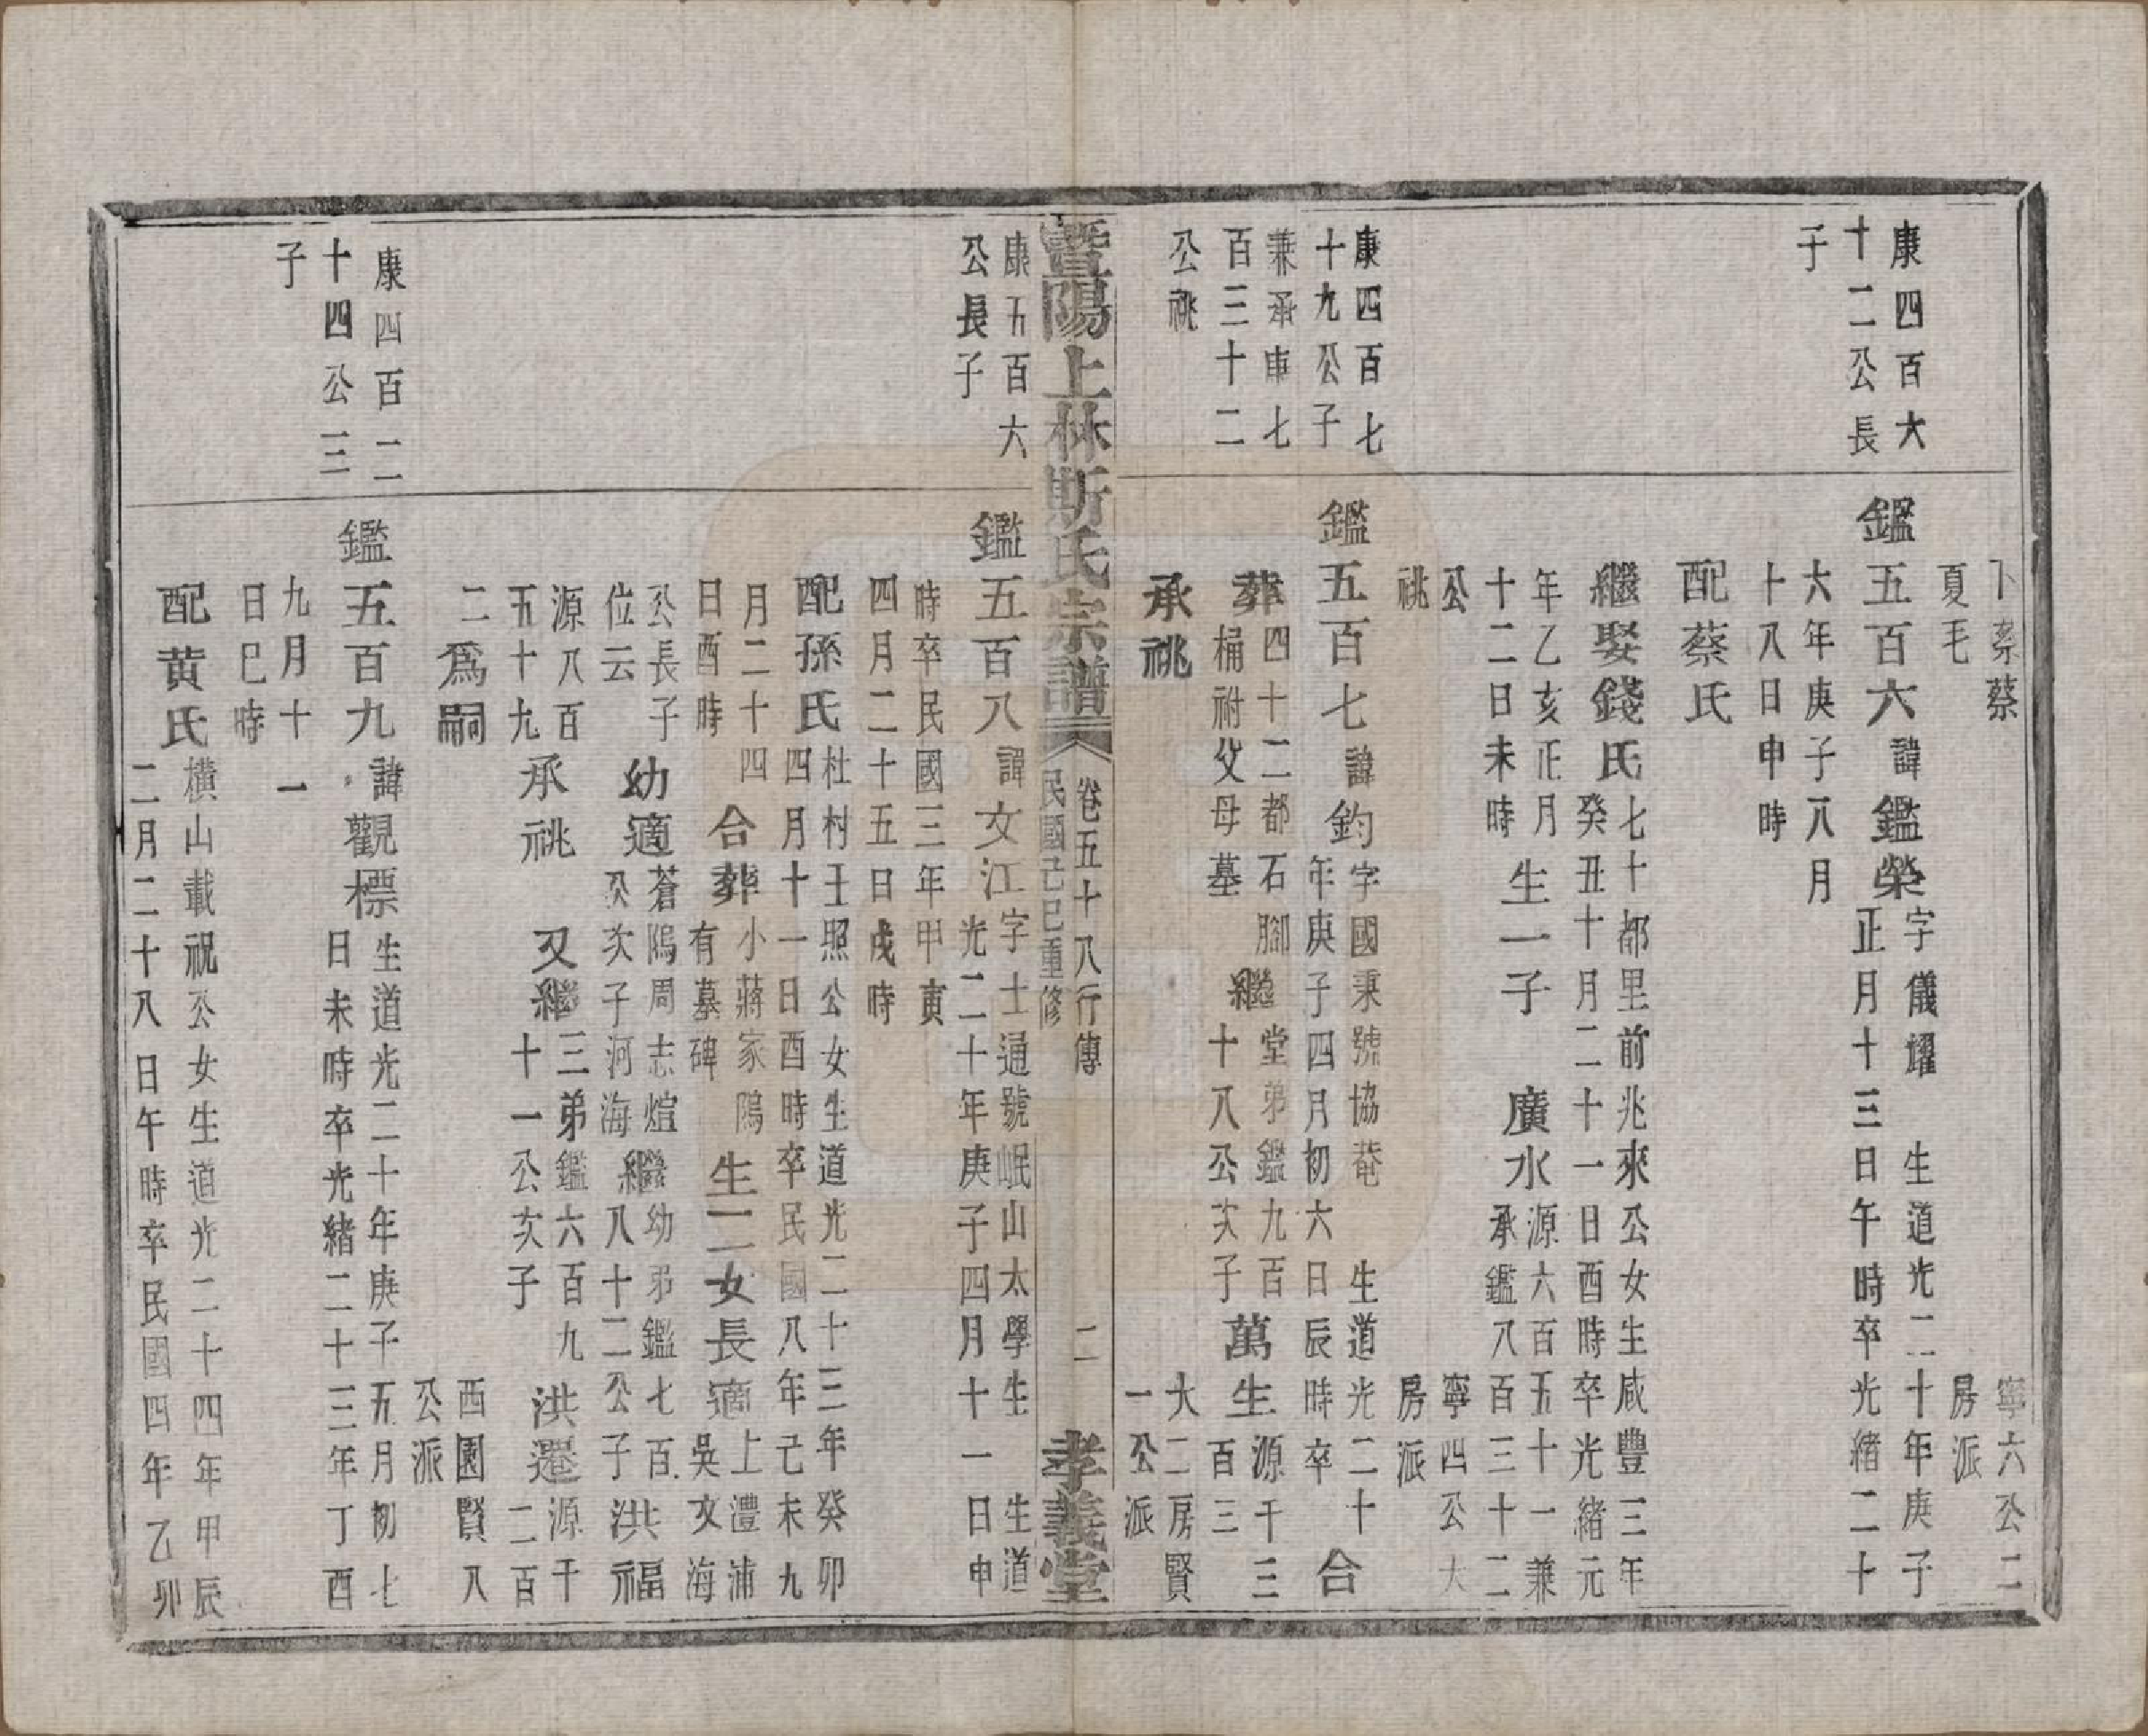 下蔡蔡
夏毛
寧六公二
房派
康四百大
十二公長
子
鑑五百六諱鑑榮字儀燿 生道光二十年庚子
正月十三日午時卒光緒二十
六年庚子八月
十八日申時
配蔡氏
繼娶錢氏七十都里前兆來公女生咸豐三年
癸丑十月二十一日酉時卒光緒元
年乙亥正月
十二日未時
生一子 廣水源六百五十一兼
承鑑八百三十二
公
祧
寧四公大
房派
康四百七
十九公子
兼承車七
百三十二
公祧
鑑五百七諱鈞字國秉號協菴 生道光二十
年庚子四月初六日辰時卒 合
葬四十二都石腳
桶祔父母墓
繼堂弟鑑九百
十八公次子
萬生源千三
百三
承祧
大二房賢
一公派
暨陽上林斯氏宗譜
卷五十八行傳
民國己巳重修
二
孝義堂
康五百六
公長子
鑑五百八諱文江字士通號岷山太學生 生道
光二十年庚子四月十一日申
時卒民國三年甲寅
四月二十五日戌時
配孫氏杜村王照公女生道光二十三年癸卯
四月十一日酉時卒民國八年己未九
月二十四
日酉時
合葬小蔣家隖
有墓碑
生二女長適上澧浦
吳文海
公長子
位云
幼適蒼隖周志煊
公次子河海
繼幼弟鑑七百
八十二公子
洪福
源八百
五十九
承祧 又繼三弟鑑六百九
十一公次子
洪遷源千
二百
二爲嗣
西園賢八
公派
康四百二
十四公三
子
鑑五百九諱觀標生道光二十年庚子五月初七
日未時卒光緒二十三年丁酉
九月十一
日巳時
配黄氏橫山載祝公女生道光二十四年甲辰
二月二十八日午時卒民國四年乙卯